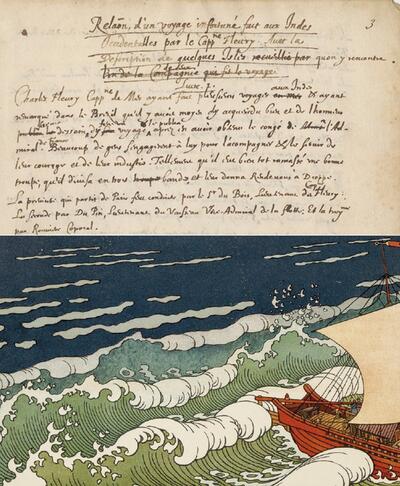 Relaõn, d'un voyage infortuné fait aux Indes 3
Occidentalles par le Cappne fleury. Avec la
Description de quelques Isles recueillie par quon y rencontre
de la Compagnie que fit le voyage.
aux Indes
Charles Fleury Cappne de Mer ayant fait plusieurs voyages et ayant
remarqué dans le Bresil qu'il y avoit moyen d'y acquerir du bien et de l'honneur
voyage apres en avoir obtenu le congé de l'Ad-
miral. Beaucoup de gens s'engagerent à luy pour l'accompagner et le servir de
leur courage et de leur industrie. Tellement qu'il eut bien tost ramassé une bonne
troupe, qu'il divisa en trois bandes et leur donna Rendevous à Dieppe.
La premiere qui partit de Paris feut conduite par le Sr du Bois, Lieutenant de Fleury:
La seconde par Du Pin, Lieutenant du Vaisseau Vice-Admiral de la flotte, Et la
par Caporal.